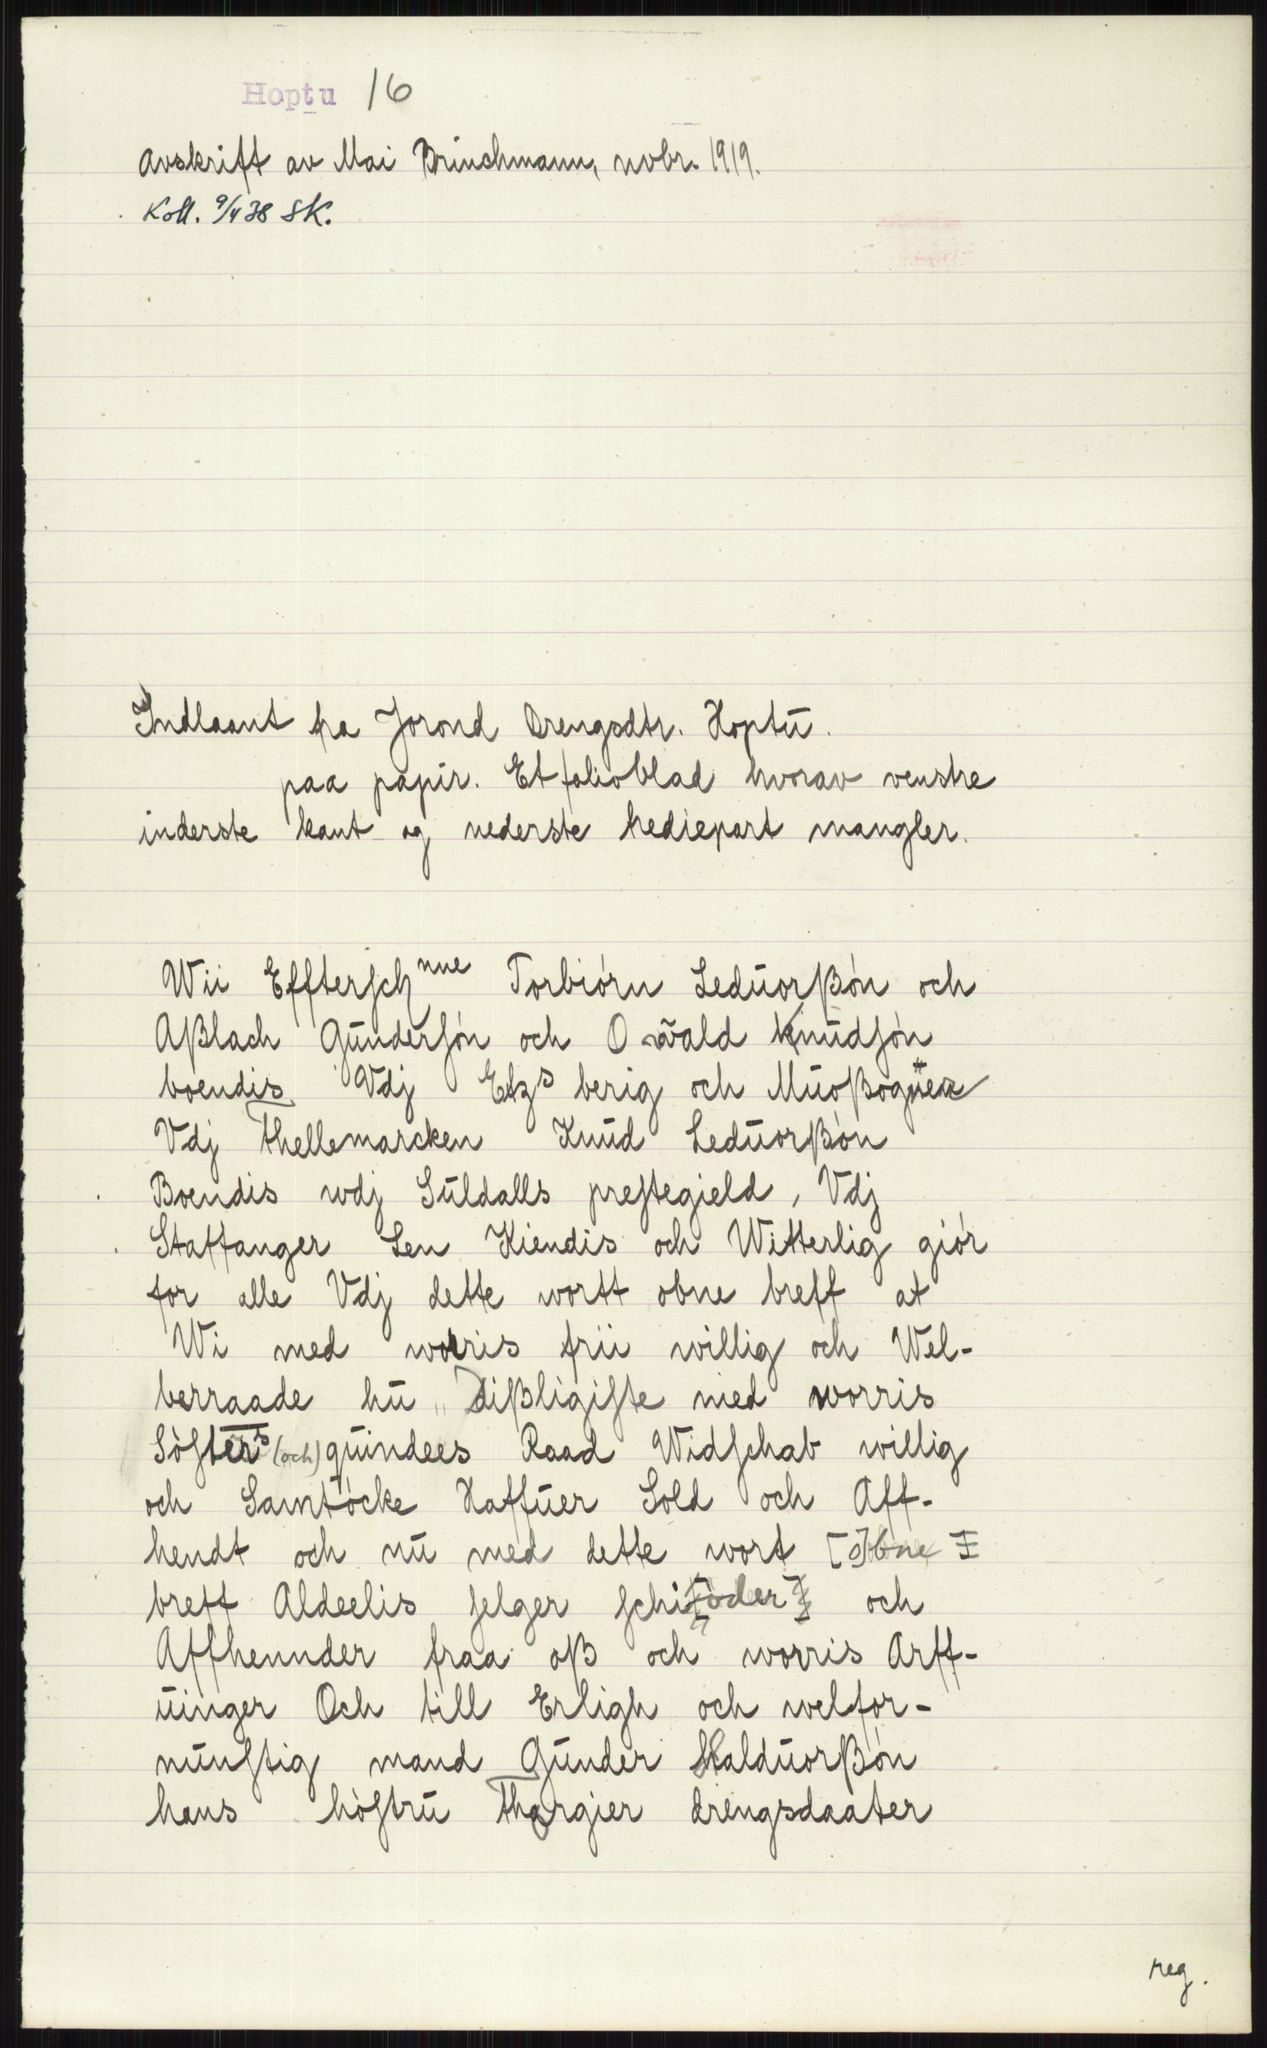 Hoptu 16
Avskrift av Mai Brinchmann, novbr. 1919.
Koll. 9/4 38 SK.
Indlaant fra Jorond Drengsdtr. Hoptŭ.
paa papir. Et folioblad hvorav venstre
inderste kant og nederste trediepart mangler.
Wii Effterschnne Torbiórn Ledŭorßón och
Aßlach Gŭndersón och O wald Knŭdsón
boendis Vdj berig och
Vdj Thellemarcken Knŭd Ledŭorßón
Boendis wdj Sŭldalls prestegield, Vdj
Staffanger Len Kiendis och Witterlig giór
for alle Vdj dette wortt obne breff at
Wi med worris frii willig och Wel-
berraade hŭ,, Dißligiste med worris
Sósters (och) qŭindees Raad Widschab willig
och Samtócke Haffŭer Sold och Aff-
hendt och nŭ med dette wort [o]bne
breff Aldeelis selger schi[óder] och
Affhennder fraa oß och worris Arff-
ŭinger Och till Erligh och welfor-
nŭnftig mand Gŭnder HaldŭorßÓn
hans hóstrŭ Thorgier drengsdaater
reg.